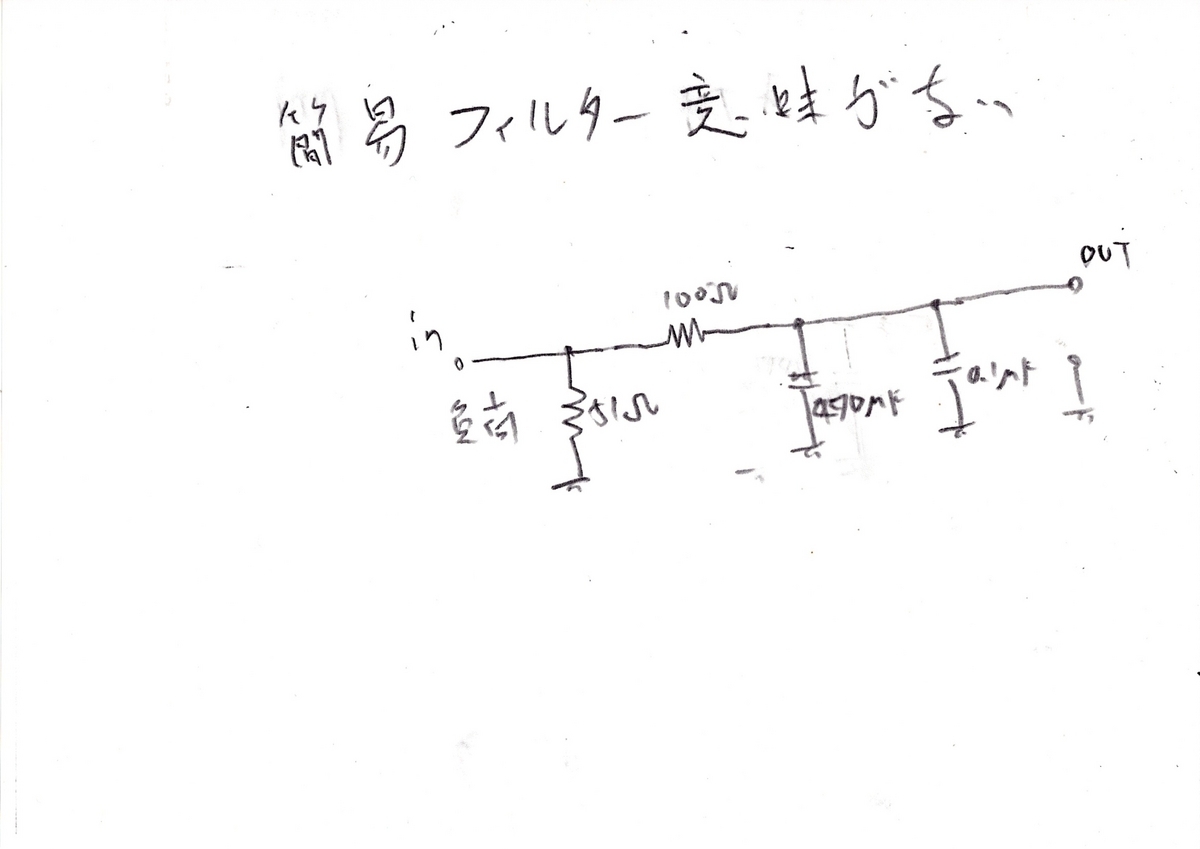 簡易フィルター意味がない
OUT
100Ω
in
負荷
51Ω
470μF
0.1μF